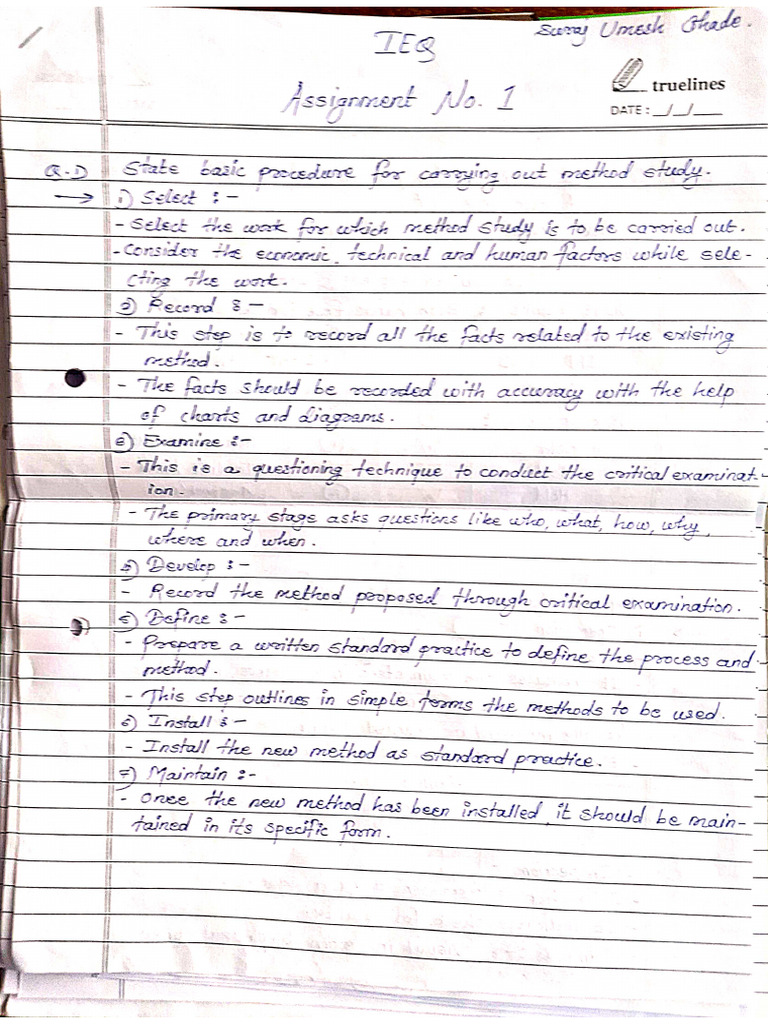 Suraj Umesh Ghade.
IEQ
Assignment No. 1
truelines
DATE: __/__/____
Q.1) State basic procedure for carrying out method study.
→ 1) Select :-
- Select the work for which method study is to be carried out.
- Consider the economic, technical and human factors while sele-
cting the work.
2) Record :-
- This step is to record all the facts related to the existing
method.
- The facts should be recorded with accuracy with the help
of charts and diagrams.
Examine :-
- This is a questioning technique to conduct the critical examinat-
ion.
- The primary stage asks questions like who, what, how, why,
where and when.
Develop :-
- Record the method proposed through critical examination.
Define :-
- Prepare a written standard practice to define the process and
method.
- This step outlines in simple terms the methods to be used.
6) Install :-
- Install the new method as standard practice.
7) Maintain :-
- Once the new method has been installed, it should be main-
tained in its specific form.